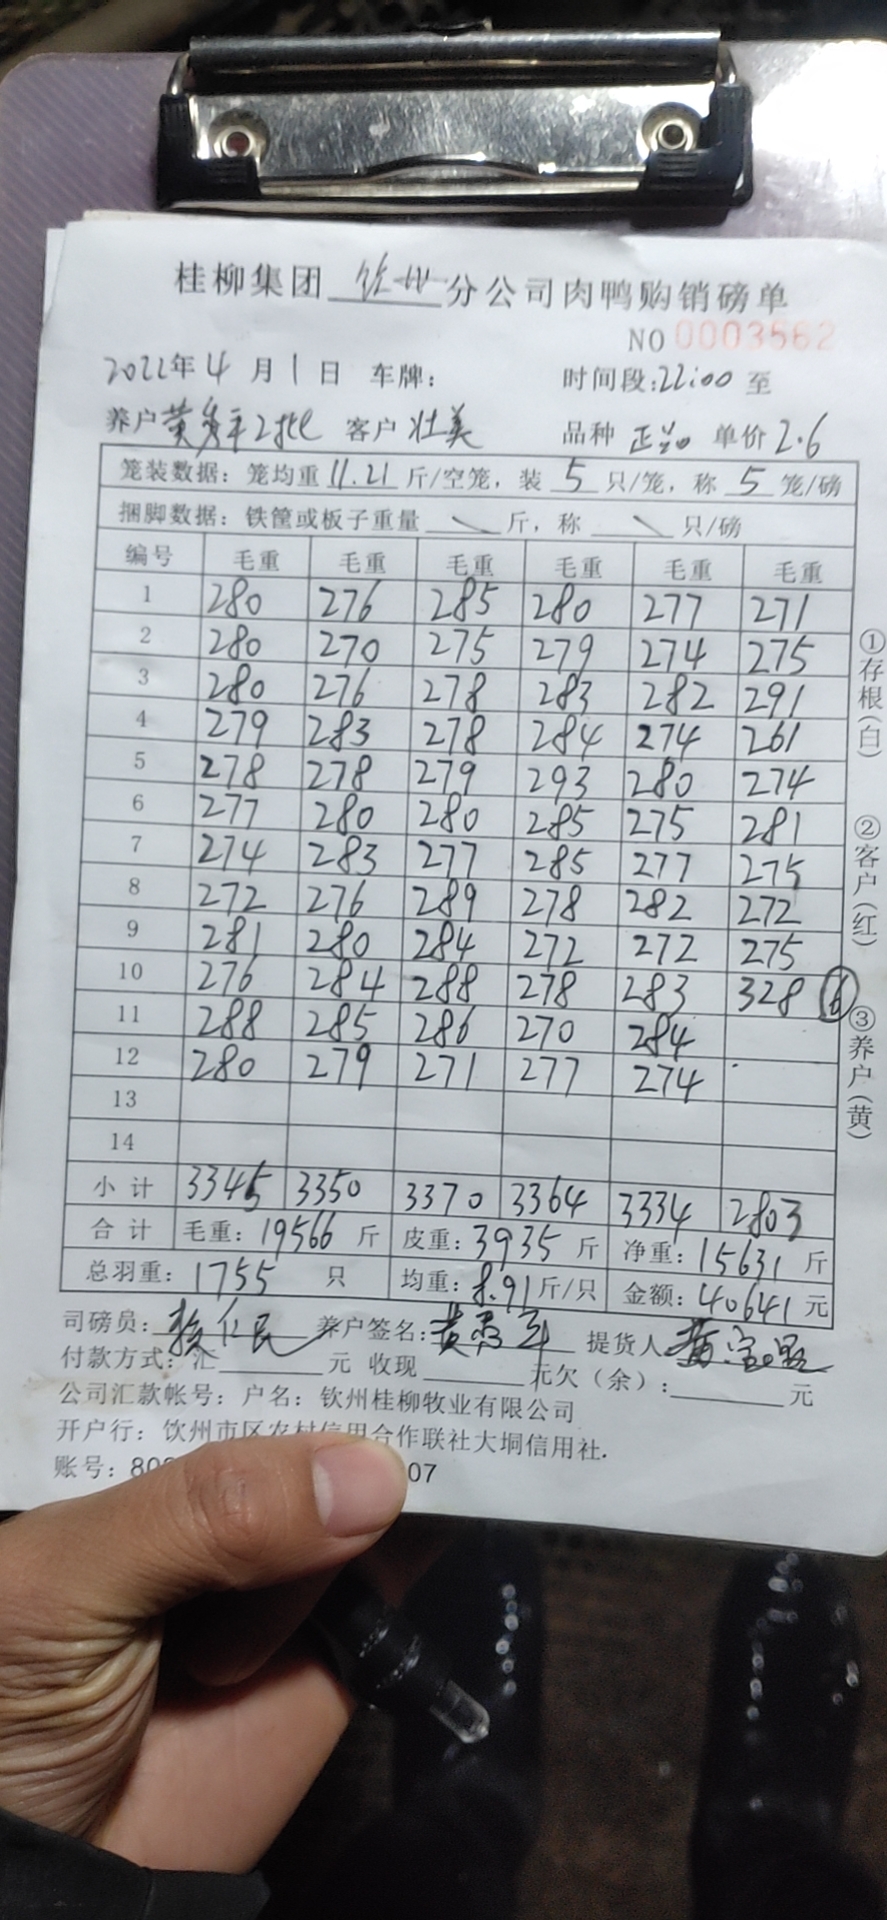 桂柳集团 钦州 分公司肉鸭购销磅单
NO 0003562
2022年4月1日 车牌: 时间段:22:00 至
养户 黄 客户 壮美 品种 单价 2.6
笼装数据: 笼均重 11.21 斤/空笼, 装 5 只/笼, 称 5 笼/磅
捆脚数据: 铁筐或板子重量 \ 斤, 称 \ 只/磅
编号 毛重 毛重 毛重 毛重 毛重 毛重
1 280 276 285 280 277 271
2 280 270 275 279 274 275
3 280 276 278 283 282 291
4 279 283 278 284 274 261
5 278 278 279 293 280 274
6 277 280 280 285 275 281
7 274 283 277 285 277 275
8 272 276 289 278 282 272
9 281 280 284 272 272 275
10 276 284 288 278 283 328 ⑥
11 288 285 286 270 284
12 280 279 271 277 274
13
14
小计 3345 3350 3370 3364 3334 2803
合计 毛重: 19566 斤 皮重: 3935 斤 净重: 15631 斤
总羽重: 1755 只 均重: 8.91 斤/只 金额: 40641 元
司磅员: 养户签名: 提货人
付款方式: 汇 元 收现 元欠(余): 元
公司汇款帐号: 户名: 钦州桂柳牧业有限公司
开户行: 饮州市区农村信用合作联社大垌信用社.
账号: 80 07
①存根(白)
②客户(红)
③养户(黄)